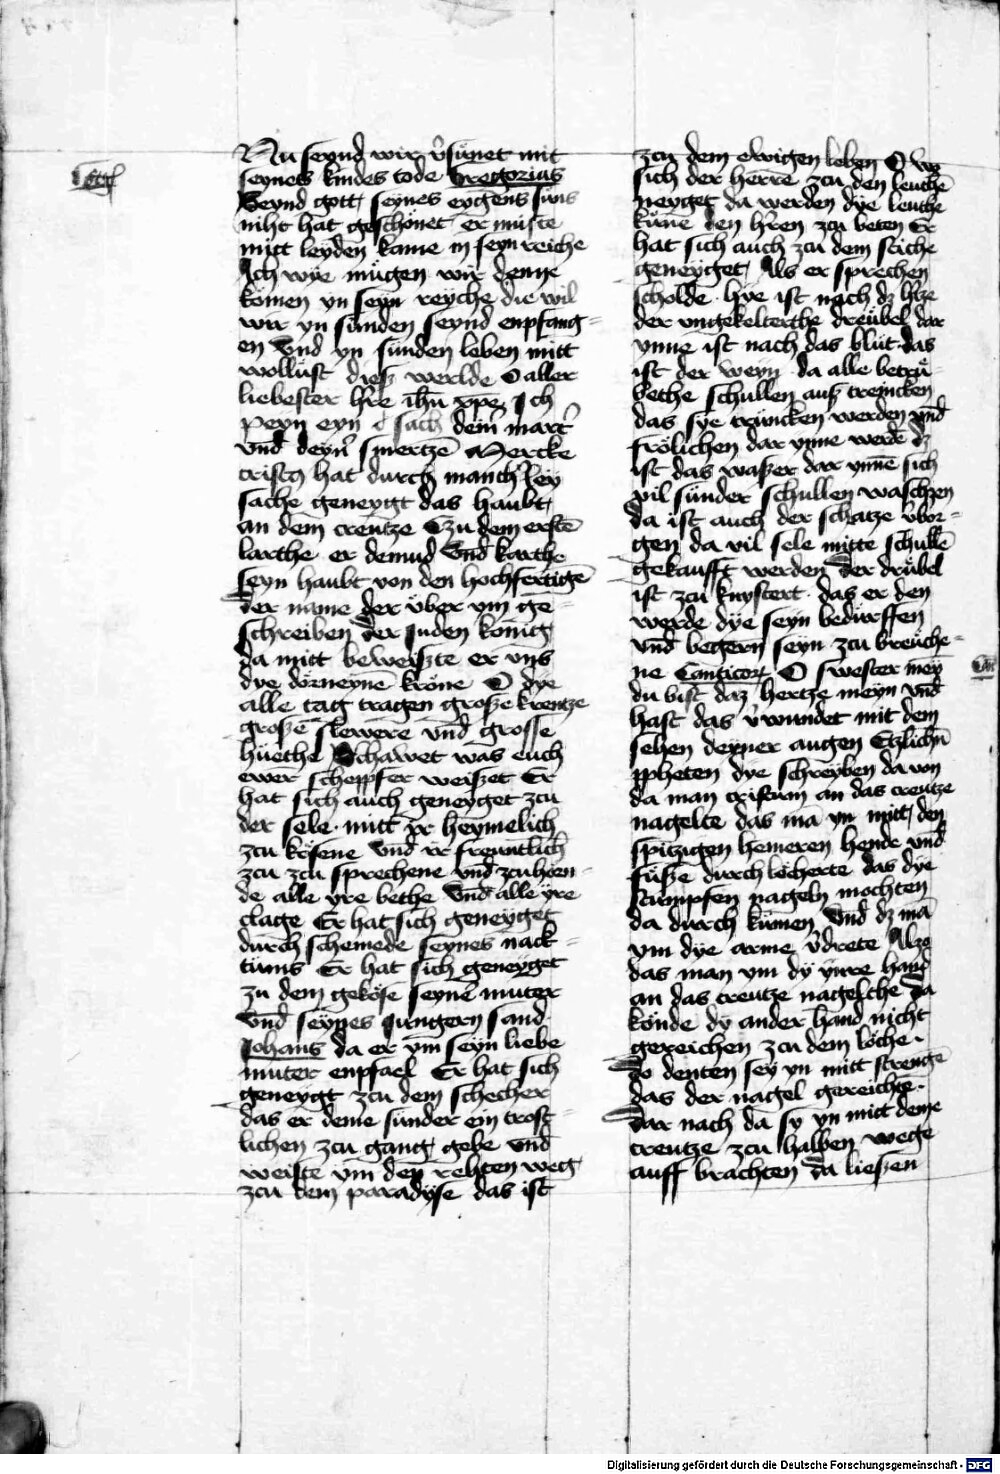 Nu seynd wir v̉sünet mit
seynes kindes tode Gregorius
Seynd gott seynes eygens süns
niht hat geschönet er müste
mitt leyden kame in seyn reiche
Ach wye mügen wir denne
kömen yn seyn reyche die wil
wir yn sünden seynd enpfang=
en Vnd yn sünden leben mitt
wollüst diesz werlde O aller
liebester hr̄e ih̄u xpe Ich
peyn eyn sach deīn mart̉
vnd deyn̉ smertzē Mercke
cristꝯ hat durch manch̉ley
sache geneygt das haubt
an dem creutze Czu dem erstē
larthe er demud Vnd karthe
seyn haubt von den hochfertigē
Der name der über ym ge=
schreiben der Juden könnig
da mitt beweiszte er vns
dye dörneyne kröne O dye
alle tag tragen grosze krentze
groszē slewere vnd grosse
hüethe Schawet was euch
ewer scheppfer weiszet Er
hat sich auch geneyget zcu
der sele mitt yr heymelich
zcu kösene Vnd yr freuntlich
zcu zcu sprechene vnd zcuhören=
de alle yre bethe Vnd alle yre
clage Er hat sich geneyget
durch schemede seynes nack=
tüms Er hat sich geneyget
zu dem geköse seynē muter
Vnd seynes Jungern sand
Johans da er ym seyn liebe
muter enpfael Er hat sich
geneygt zcu dem schecher
das er deme sünder ein trost=
lichen zcu gang gebe vnd
weiste ym den rehten weg
zcu dem paradyse das ist
zcu dem ewigen leben O wo
sich der herre zcu den leuthē
neyget da werden dye leuthe
küne den hr̄en zcu beten Er
hat sich auch zcu dem stiche
geneyget Als er sprechen
scholde hye ist nach dz hr̄tze
der vngekelterthe dreübel dar
ynne ist nach das blüt das
ist der weyn da alle betrü=
bethe schullen ausz treincken
das sye trüncken werden vnd
frölichen dar ynne werdē dz
ist das waszer dar ynnē sich
vil sünder schullen waschzen
da ist auch der schatze v̉bor=
gen da vil sele mitte schullē
gekaufft werden Der drübel
ist zcu knystert das er den
werde dye seyn bedürffen
vnd begern seyn zcu breüche=
ne Canticorꝝ O swester mey
du bist daz hertze meyn vnd
hast das v̉wundet mit dem
sehen deyner augen Etzlichn̄
ppheten dye schreyben da von
da man cristum an das creutze
nagelte das mā yn mitt den
spitzigen hemeren hende vnd
füsze durch löcherte das dye
stumpfen nageln mochten
da durch kümen Vnd dz mā
ym dye arme v̉drete Alzo
das man ym dy ynre hand
an das creutze nagelche Da
könde dy ander hand nicht
gereichen zcu dem löche
Do denten sey yn mitt strengē
das der nagel gereichte
Dar nach da sy yn mitt deme
creutze zcu halben wege
auff brachten da lieszen
Digitalisierung gefördert durch die Deutsche Forschungsgemeinschaft - DFG